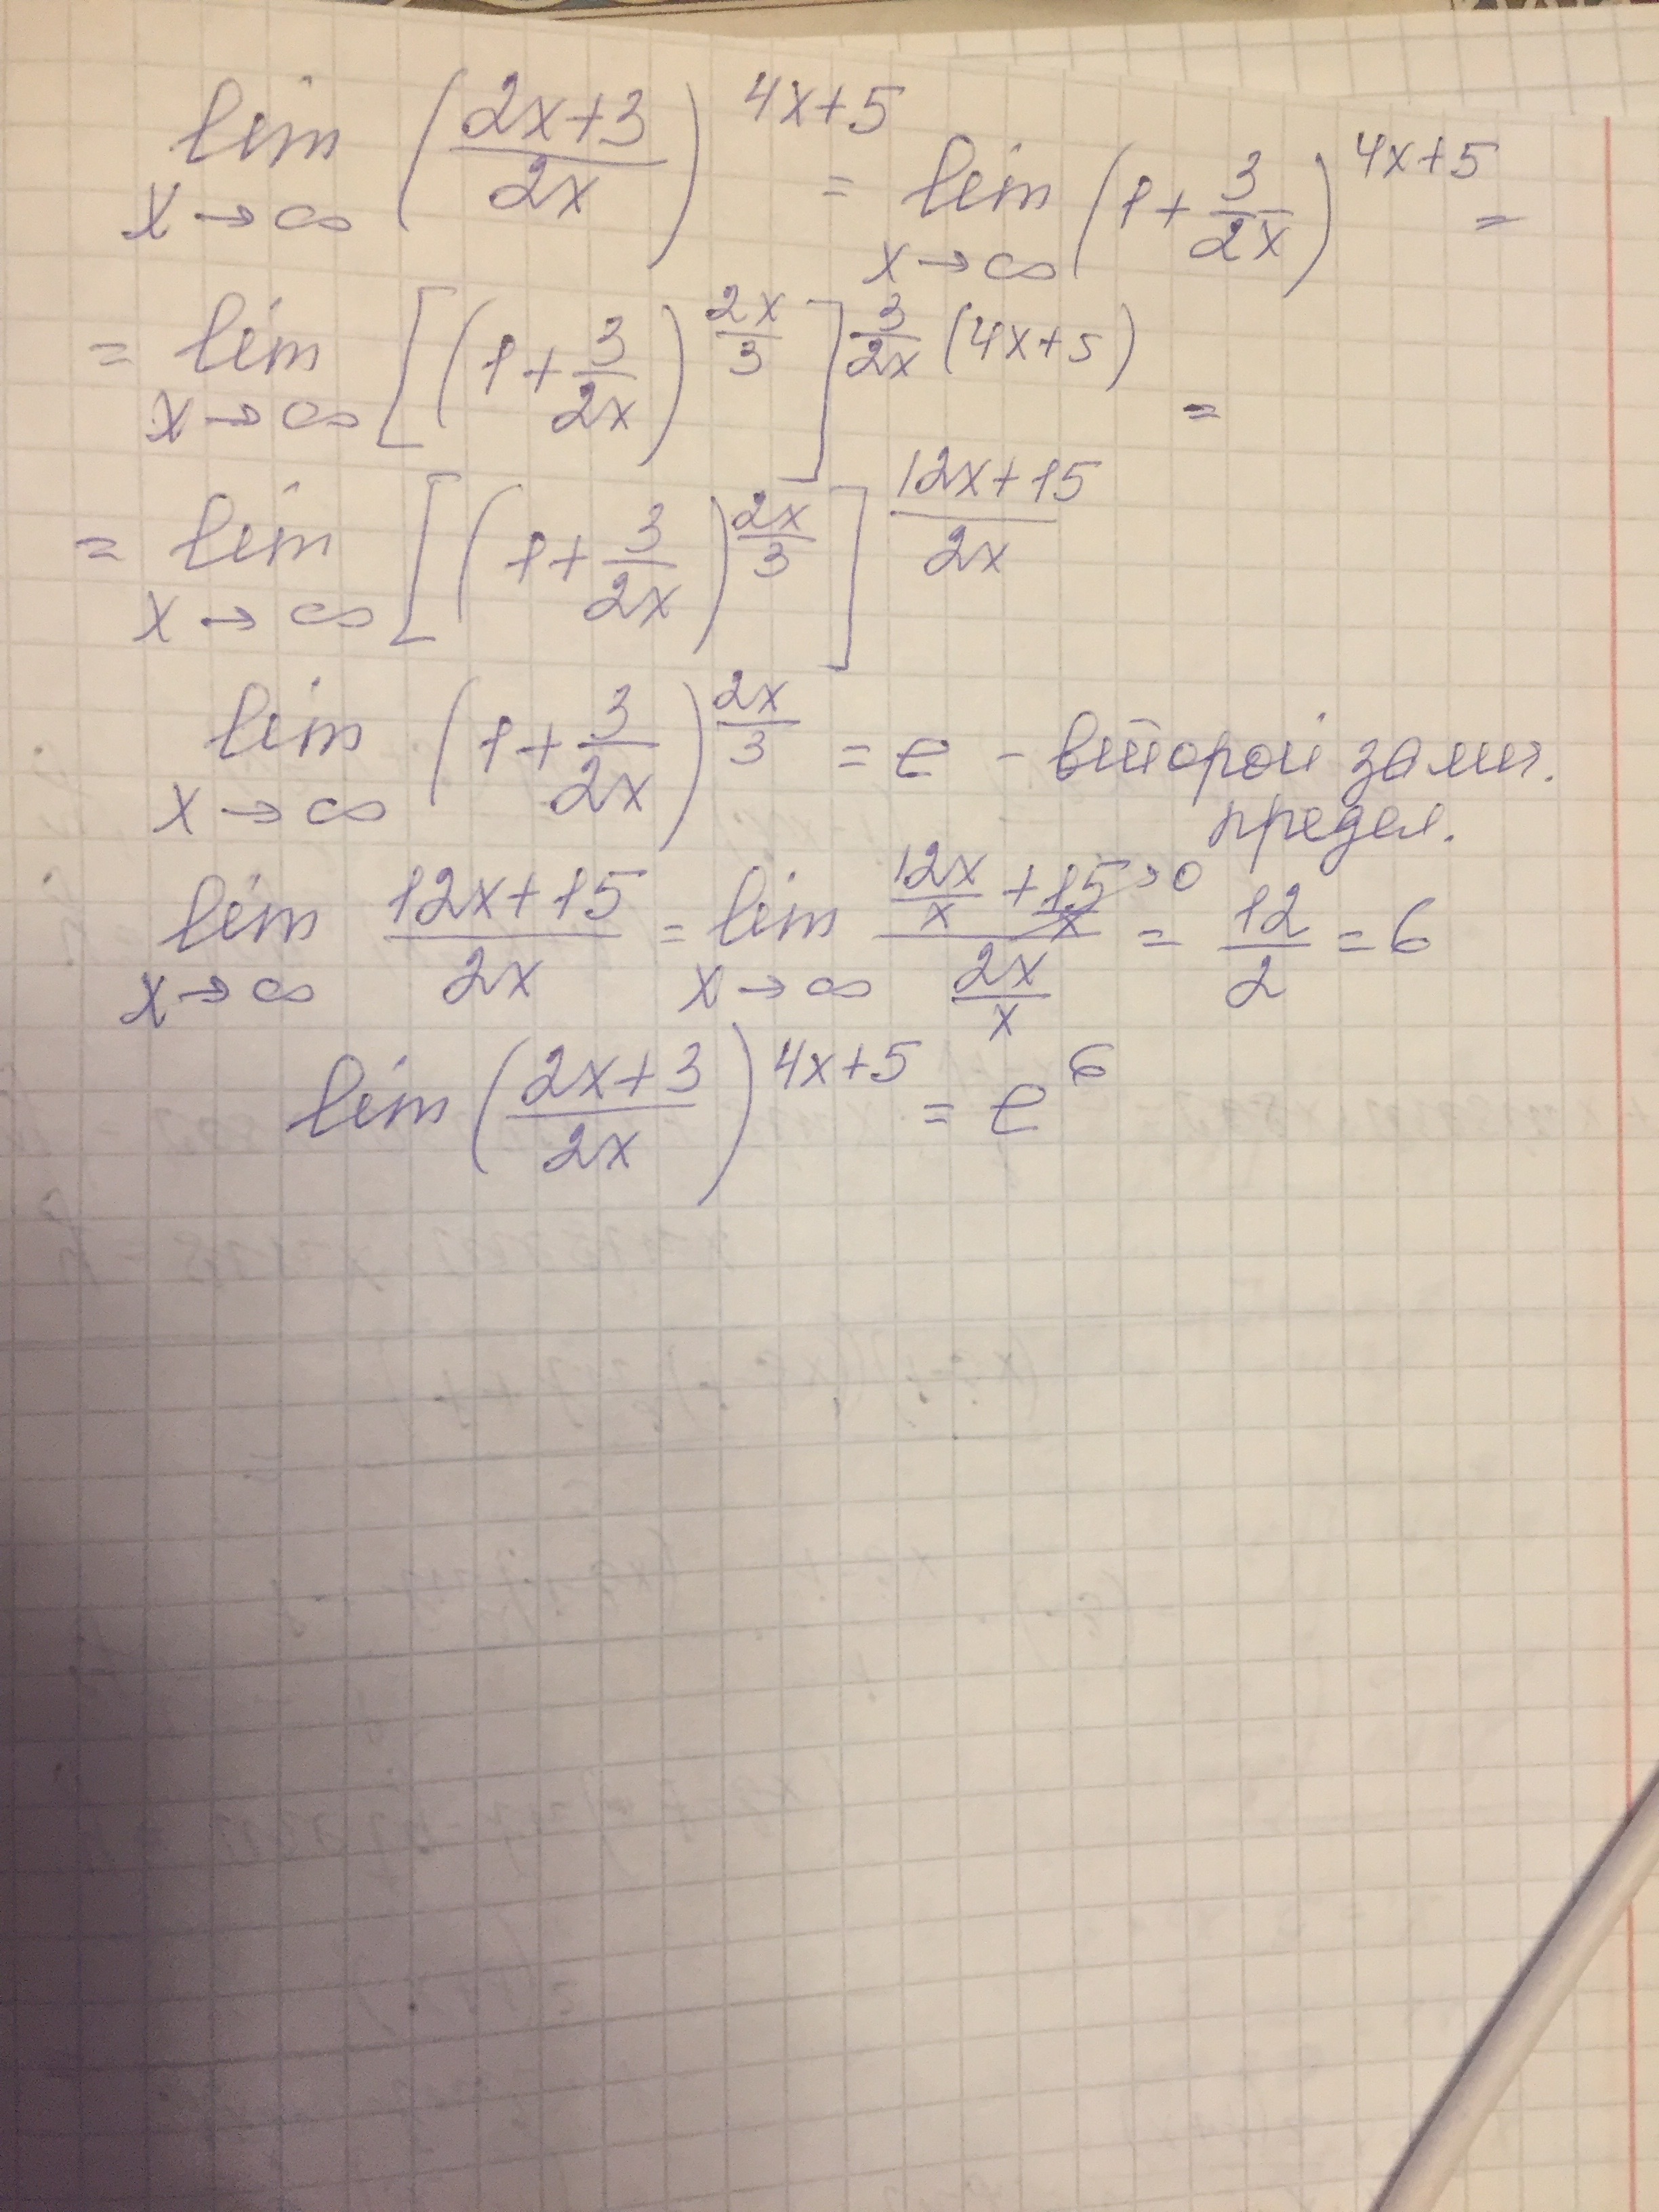 lim x→∞ (2x+3 / 2x)^(4x+5) = lim x→∞ (1+3/2x)^(4x+5) =
= lim x→∞ [(1+3/2x)^(2x/3)]^(3/2x (4x+5)) =
= lim x→∞ [(1+3/2x)^(2x/3)]^(12x+15 / 2x)
lim x→∞ (1+3/2x)^(2x/3) = e – второй замеч.
предел.
lim x→∞ 12x+15 / 2x = lim x→∞ (12x/x + 15/x →0) / (2x/x) = 12/2 = 6
lim (2x+3 / 2x)^(4x+5) = e^6